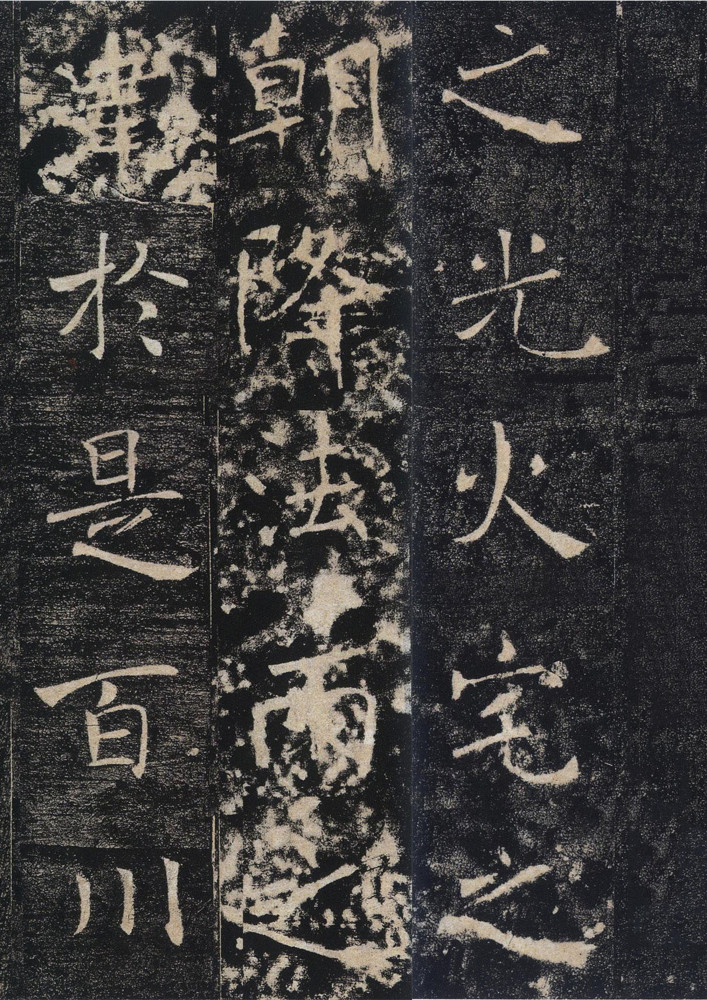 之光火宅之
朝降法雨之
津於是百川